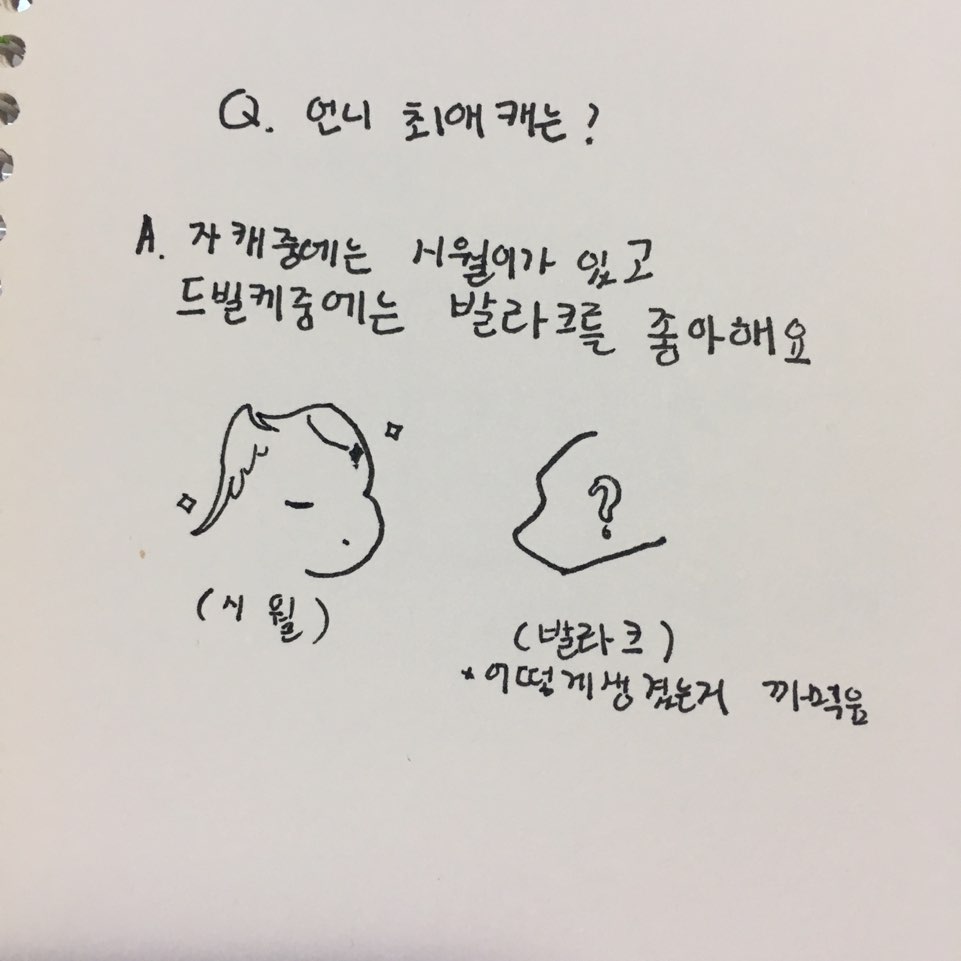 Q. 언니 최애캐는?
A. 자캐중에는 시월이가 있고
드빌케중에는 발라크를 좋아해요
?
(시월)
(발라크)
*어떻게생겼는지 까먹음